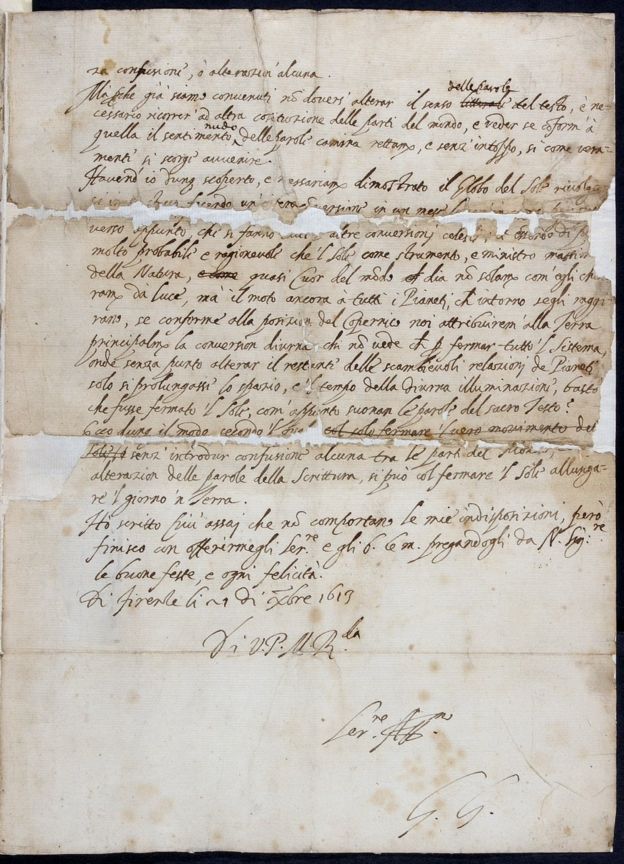 za confusione, ò alterazion' alcuna.
Mà che già siamo convenuti nõ doversi alterar il senso delle parole del testo, è ne-
cessario ricorrer' ad altra costituzione delle parti del mondo, e veder se cõform'à
quella il sentimento nudo delle parole camina rettam.e, e senz'intoppo, si come vera-
mente si scorge avvenire.
Havend'io dunq. scoperto, e necessariam.e dimostrato il Globo del Sole
facendo un conversione in un mese
verso appunto, che si fanno altre conversioni celesti,
molto probabile e ragionevole che 'l Sole come strumento, e ministro massimo
della Natura, quasi Cuor del mõdo dia nõ solam.e com'egli chia-
ram.e dà luce, mà il moto ancora à tutti i Pianeti, ch' intorno segli raggi-
rano, se conforme alla posizion del Copernico noi attribuirem' alla Terra
principalm.e la conversion diurna, chi nõ vede ch p fermar tutto 'l Sistema,
onde senza punto alterar il restante delle scambievoli relazioni de Pianeti
solo si prolungasse lo spazio, e 'l tempo della diurna illuminazione, bastò
che fusse fermato 'l Sole, com'appunto suonan le parole del sacro Testo?
Ecco dunq. il modo secondo 'l quale
senz' introdur confusione alcuna tra le parti del Mondo,
alterazion delle parole della Scrittura, si può col fermare 'l Sole allunga-
re 'l giorno 'n Terra.
Hò scritto più assai che nõ comportano le mie indisposizioni, però
finisco con offerirmegli ser.re e gli b. le m. pregandogli da N. Sig.re
le buone feste, e ogni felicità.
Di Firenze li 21 di Xbre 1613
Di V.P.M.R.da
Ser.re Aff.mo
G. G.